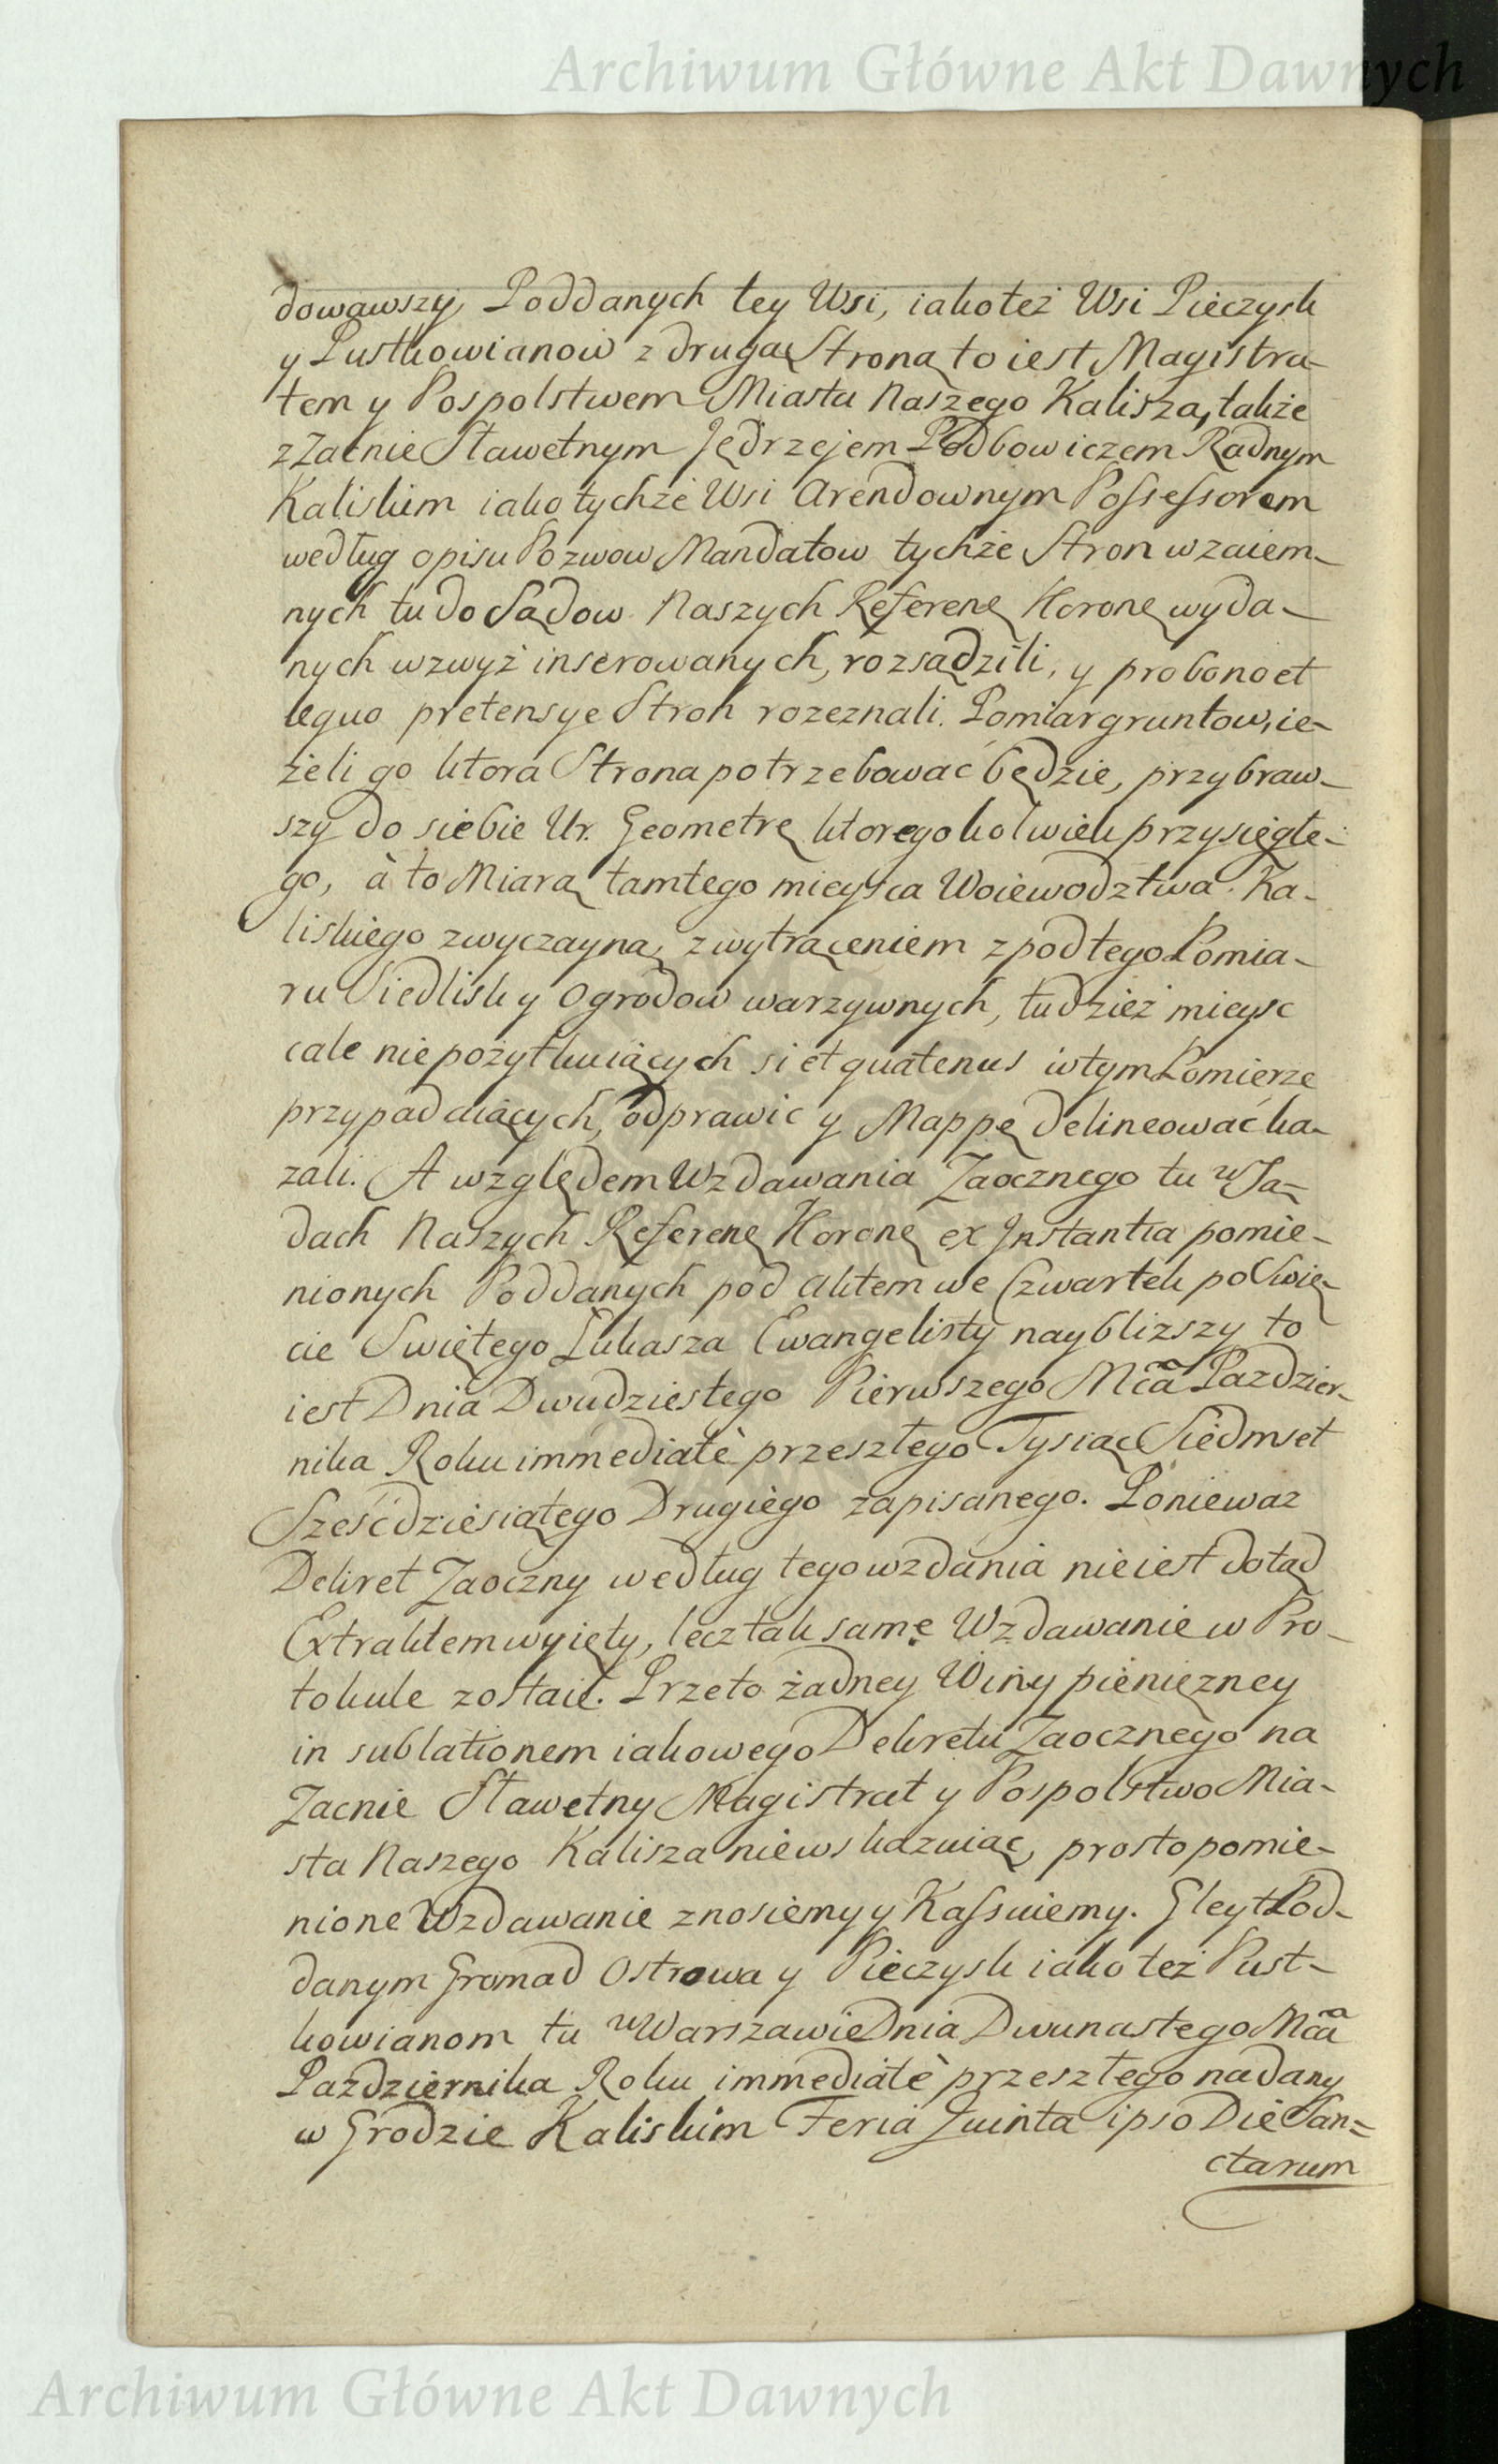 Archiwum Główne Akt Dawnych
dowawszy, Poddanych tey Wsi, iako też Wsi Pieczysk
y Pustkowianow z drugą Stroną to iest Magistra-
tem y Pospolstwem Miasta Naszego Kalisza, także
z Zacnie Sławetnym Jędrzejem Podbowiczem Radnym
Kaliskim iako tychże Wsi Arendownym Possessorem
według opisu Pozwow Mandatow tychże Stron wzaiem-
nych tu do Sądow Naszych Referenẽ Koronẽ wyda-
nych wzwyż inserowanych, rozsądzili, y pro bono et
æquo pretensye Stron rozeznali. Pomiar gruntow, ie-
żeli go ktora Strona potrzebować będzie, przybraw-
szy do siebie Ur. Geometrę ktoregokolwiek przysięgłe-
go, à to Miarą tamtego mieysca Woiewodztwa Ka-
liskiego zwyczayną, z wytrąceniem z pod tego Pomia-
ru Siedlisk y Ogrodow warzywnych, tudzież mieysc
cale niepożytkuiących si et quatenus w tym Pomierze
przypadaiących, odprawić y Mappę delineować ka-
zali. A względem Wzdawania Zaocznego tu w Są-
dach Naszych Referenẽ Koronẽ ex Instantia pomie-
nionych Poddanych pod aktem we Czwartek po Świę-
cie Swiętego Łukasza Ewangelisty naybliższy to
iest Dnia Dwudziestego Pierwszego Mca Pazdzier-
nika Roku immediatè przeszłego Tysiąc Siedmset
Sześćdziesiątego Drugiego zapisanego. Ponieważ
Dekret Zaoczny według tego wzdania nie iest dotąd
Extraktem wyięty, lecz tak same Wzdawanie w Pro-
tokule zostaie. Przeto żadney Winy pieniężney
in sublationem iakowego Dekretu Zaocznego na
Zacnie Sławetny Magistrat y Pospolstwo Mia-
sta Naszego Kalisza niewskazuiąc, prosto pomie-
nione Wzdawanie znosiemy y Kassuiemy. Gleyt Pod-
danym Gromad Ostrowa y Pieczysk iako też Pust-
kowianom tu w Warszawie Dnia Dwunastego Mca
Października Roku immediatè przeszłego nadany
w Grodzie Kaliskim Feria Quinta ipso Die San=
ctarum
Archiwum Główne Akt Dawnych